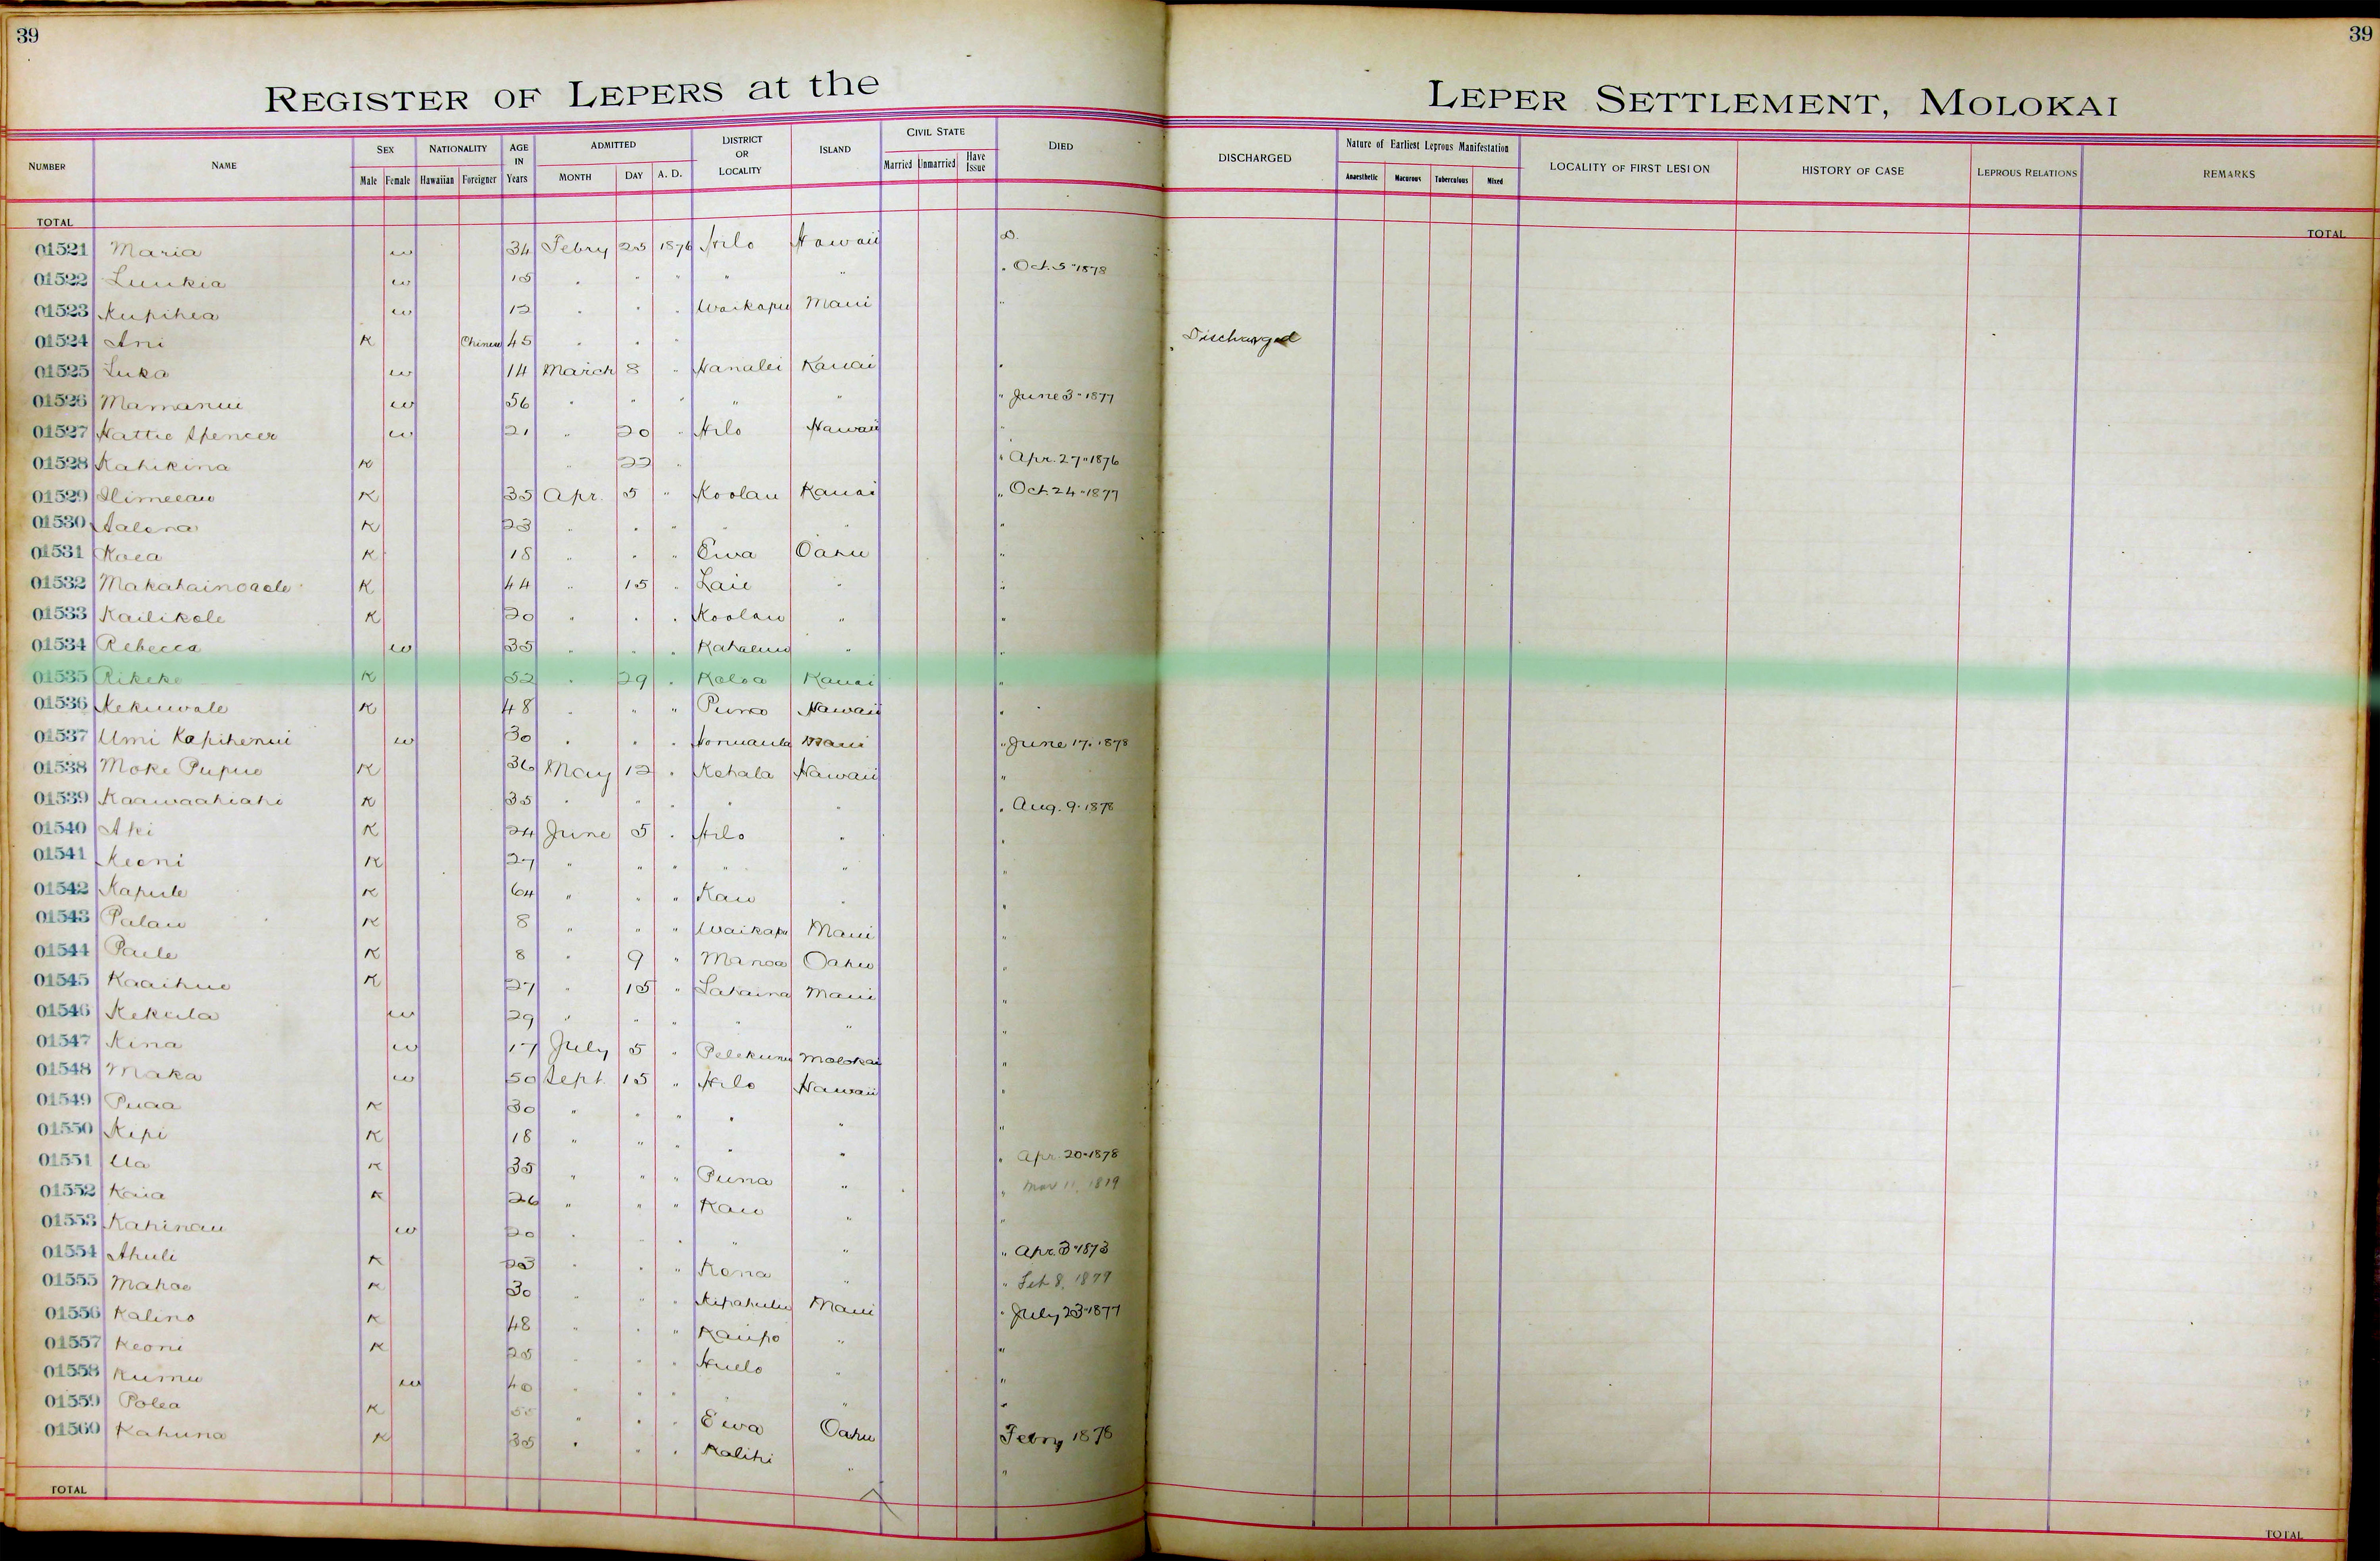 39
39
REGISTER OF LEPERS at the LEPER SETTLEMENT, MOLOKAI
NUMBER NAME SEX Male Female NATIONALITY Hawaiian Foreigner AGE IN Years ADMITTED MONTH DAY A. D. DISTRICT OR LOCALITY ISLAND CIVIL STATE Married Unmarried Have Issue DIED DISCHARGED Nature of Earliest Leprous Manifestation Anaesthetic Macurous Tuberculous Mixed LOCALITY OF FIRST LESION HISTORY OF CASE LEPROUS RELATIONS REMARKS
TOTAL TOTAL
01521 Maria w 34 Febry 25 1876 Hilo Hawaii D.
01522 Luukia w 15 " " " " " " Oct. 5 "1878
01523 Kupihea w 12 " " " Waikapu Maui "
01524 Ani K Chinese 45 " " " Discharged
01525 Luka w 14 March 8 " Hanalei Kauai "
01526 Mamanui w 56 " " " " " " June 3 - 1877
01527 Hattie Spencer w 21 " 20 " Hilo Hawaii "
01528 Kahikina K " 22 " " Apr. 27 "1876
01529 K 35 Apr. 5 " Koolau Kauai " Oct. 24 -1877
01530 Aalona K 23 " " " " " "
01531 Koea K 18 " " " Ewa Oahu "
01532 Makahainoaole K 44 " 15 " Laie " "
01533 Kailikole K 20 " " " Koolau " "
01534 Rebecca w 35 " " " " "
01535 Rikeke K 52 " 29 " Koloa Kauai "
01536 Kekuwale K 48 " " " Puna Hawaii "
01537 Umi Kapihenui w 30 " " " Honuaula Maui " June 17. 1878
01538 Moke Pupue K 36 May 12 " Kohala Hawaii "
01539 Kaawaahiahi K 35 " " " " " " Aug. 9. 1878
01540 Ahi K 24 June 5 " Hilo " "
01541 Keoni K 27 " " " " " "
01542 Kapule K 64 " " " Kau " "
01543 Palau K 8 " " " Waikapu Maui "
01544 Paule K 8 " 9 " Manoa Oahu "
01545 Kaaihue K 27 " 15 " Lahaina Maui "
01546 Kekula w 29 " " " " " "
01547 Kina w 17 July 5 " Pelekunu Molokai "
01548 Maka w 50 Sept. 15 " Hilo Hawaii "
01549 Puaa K 30 " " " " " "
01550 Kepi K 18 " " " " " "
01551 Ua K 35 " " " Puna " " Apr. 20 "1878
01552 Kaia K 26 " " " Kau " " Mar 11, 1819
01553 Kahinau w 20 " " " " " "
01554 Ahuli K 23 " " " Kona " " Apr. 3 "1873
01555 Mahoe K 30 " " " Kipahulu Maui " Feb 8, 1879
01556 Kalino K 48 " " " Kaupo " " July 23 "1877
01557 Keoni K 25 " " " Huelo " "
01558 Kumu w 40 " " " " "
01559 Polea K 55 " " " Ewa Oahu "
01560 Kahuna K 35 " " " Kalihi " Febry 1878
TOTAL TOTAL